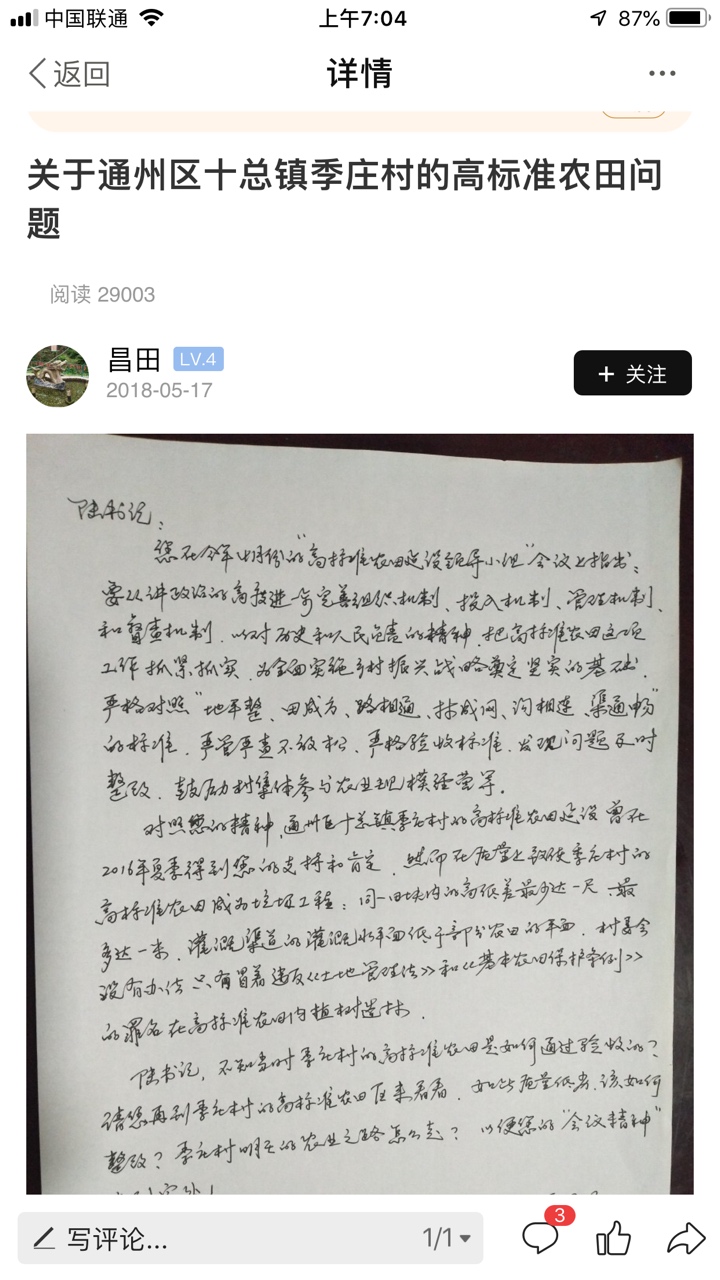 中国联通 上午7:04 87%
返回 详情 ...
关于通州区十总镇季庄村的高标准农田问
题
阅读 29003
昌田 LV.4
2018-05-17
+ 关注
陆书记:
您在今年4月份的"高标准农田建设领导小组"会议上指出:
要以讲政治的高度进一步完善组织机制、投入机制、管理机制、
和督查机制.以对历史和人民负责的精神.把高标准农田这项
工作抓紧抓实.为全面实施乡村振兴战略奠定坚实的基础.
严格对照"地平整、田成方、路相通、林成网、沟相连、渠通畅"
的标准.严管严查不放松.严格验收标准.发现问题及时
整改.鼓励村集体参与农业规模经营等.
对照您的精神,通州区十总镇季庄村的高标准农田建设曾在
2016年夏季得到您的支持和肯定.然而在质量上致使季庄村的
高标准农田成为垃圾工程:同一田块内的高低差最少达一尺.最
多达一米.灌溉渠道的灌溉水平面低于部分农田的平面.村委会
没有办法只有冒着违反《土地管理法》和《基本农田保护条例》
的罪名在高标准农田内植树造林.
陆书记,不知当时季庄村的高标准农田是如何通过验收的?
请您再到季庄村的高标准农田区来看看.如此质量低劣.该如何
整改?季庄村明天的农业之路怎么走?以便您的"会议精神"
写评论... 1/1 3